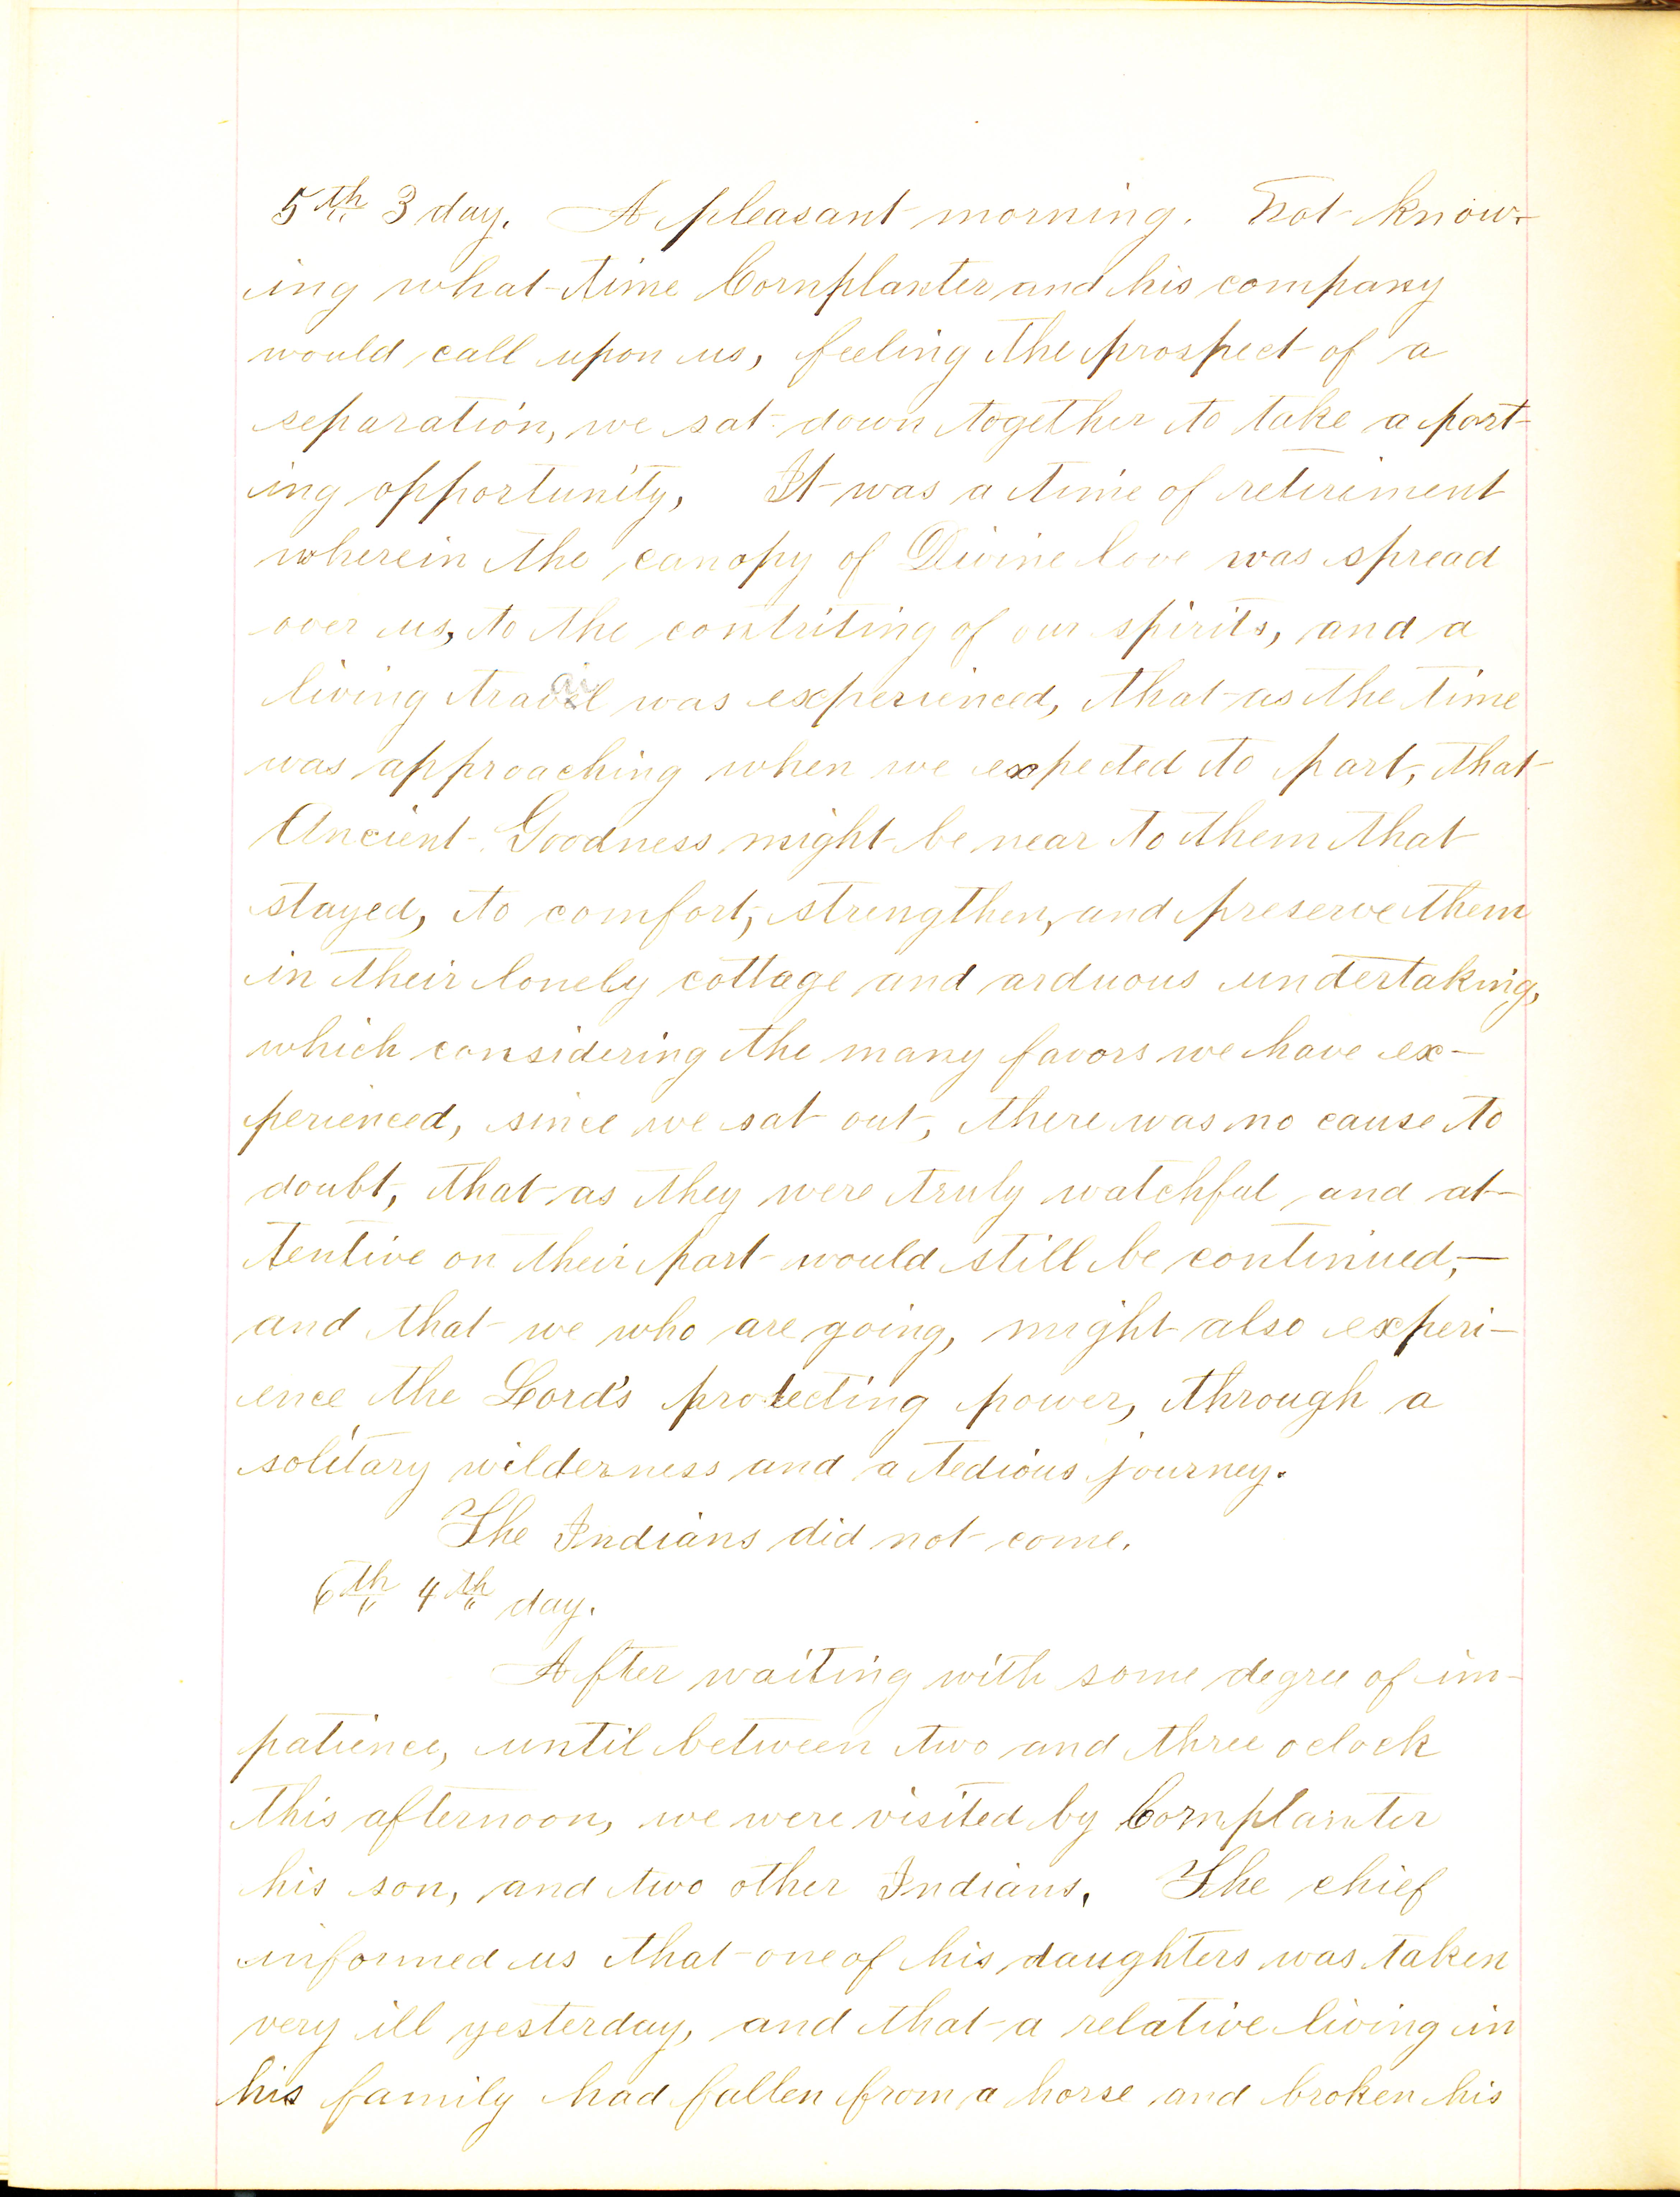 5th 3 day. A pleasant morning. Not know-
ing what time Cornplanter and his company
would call upon us, feeling the prospect of a
separation, we sat down together to take a part-
ing opportunity. It was a time of retirement
wherein the canopy of Divine love was spread
over us, to the contriting of our spirits, and a
living travail was experienced, that as the time
was approaching when we expected to part, that
Ancient Goodness might be near to them that
stayed, to comfort, strengthen, and preserve them
in their lonely cottage and arduous undertaking,
which considering the many favors we have ex-
perienced, since we sat out, there was no cause to
doubt, that as they were truly watchful and at-
tentive on their part would still be continued,—
and that we who are going, might also experi-
ence the Lord's protecting power, through a
solitary wilderness and a tedious journey.
The Indians did not come.
6th 4th day.
After waiting with some degree of im-
patience, until between two and three oclock
this afternoon, we were visited by Cornplanter
his son, and two other Indians. The chief
informed us that one of his daughters was taken
very ill yesterday, and that a relative living in
his family had fallen from a horse and broken his